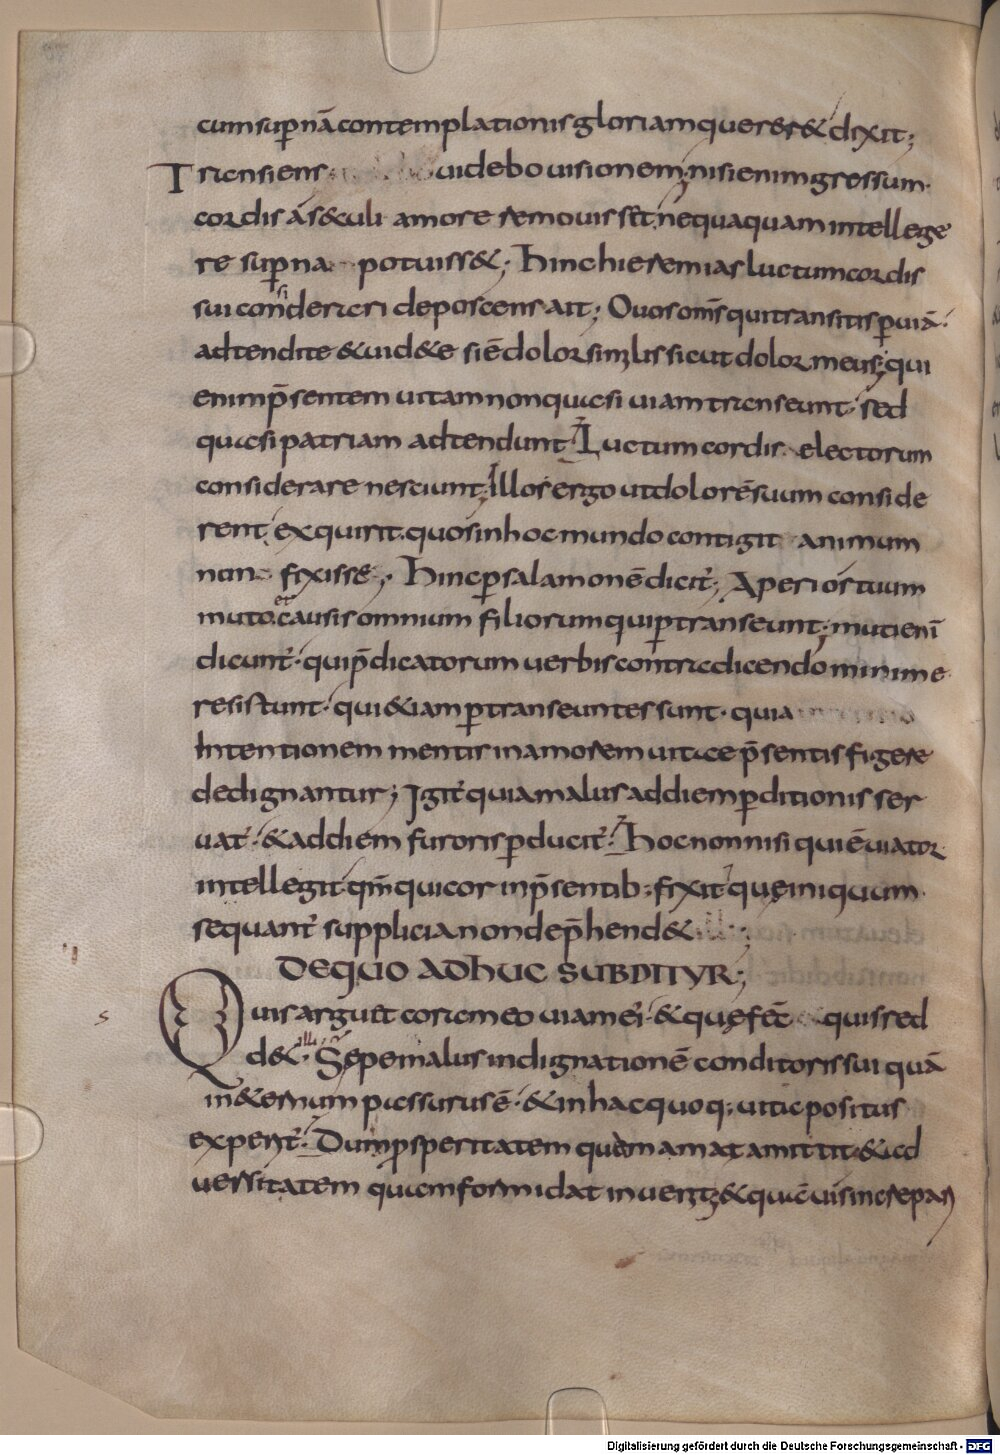 cum sup̄nā contemplationis gloriam quereret & dixit;
Transiens videbo visionem; nisi enim gressum
cordis a s&uli amore removisset nequaquam intellege
re sup̄na potuiss&; Hinc hieremias luctum cordis
sui considerari deposcens ait; O vos om̄s qui transitis p̄ viā·
adtendite & vid&e si ē dolor similis sicut dolor meus; qui
enim p̄sentem vitam non quasi viam transeunt· sed
quasi patriam adtendunt· Luctum cordis electorum
considerare nesciunt; Illos ergo ut dolorē suum conside
rent exquirit· quos in hoc mundo contigit animum
non fixisse; Hinc p̄ salamonē dicit̄; Aperi os tuum
muto et causis omnium filiorum qui p̄transeunt; muti enī
dicunt̄· qui p̄dicatorum verbis contradicendo minime
resistunt· qui &iam p̄transeuntes sunt· quia
Intentionem mentis in amorem vitae p̄sentis figere
dedignantur; Igit̄ quia malus ad diem p̄ditionis ser
vat̄· & ad diem furoris p̄ducit̄· Hoc non nisi qui ē viator
intellegit· qm̄ qui cor in p̄sentib; fixit quę iniquum
sequant̄ supplicia non dep̄hend&;
DE QUO ADHUC SUBDITUR;
Quis arguet coram eo viam ei· & quę fec̄ quis red
d& illi· Sępe malus indignationē conditoris sui quā
in &ernum passurus ē· & in hac quoq; vita positus
experit̄· Dum p̄speritatem quam amat amittit· & ad
versitatem quam formidat invenit; & quāvis increpari